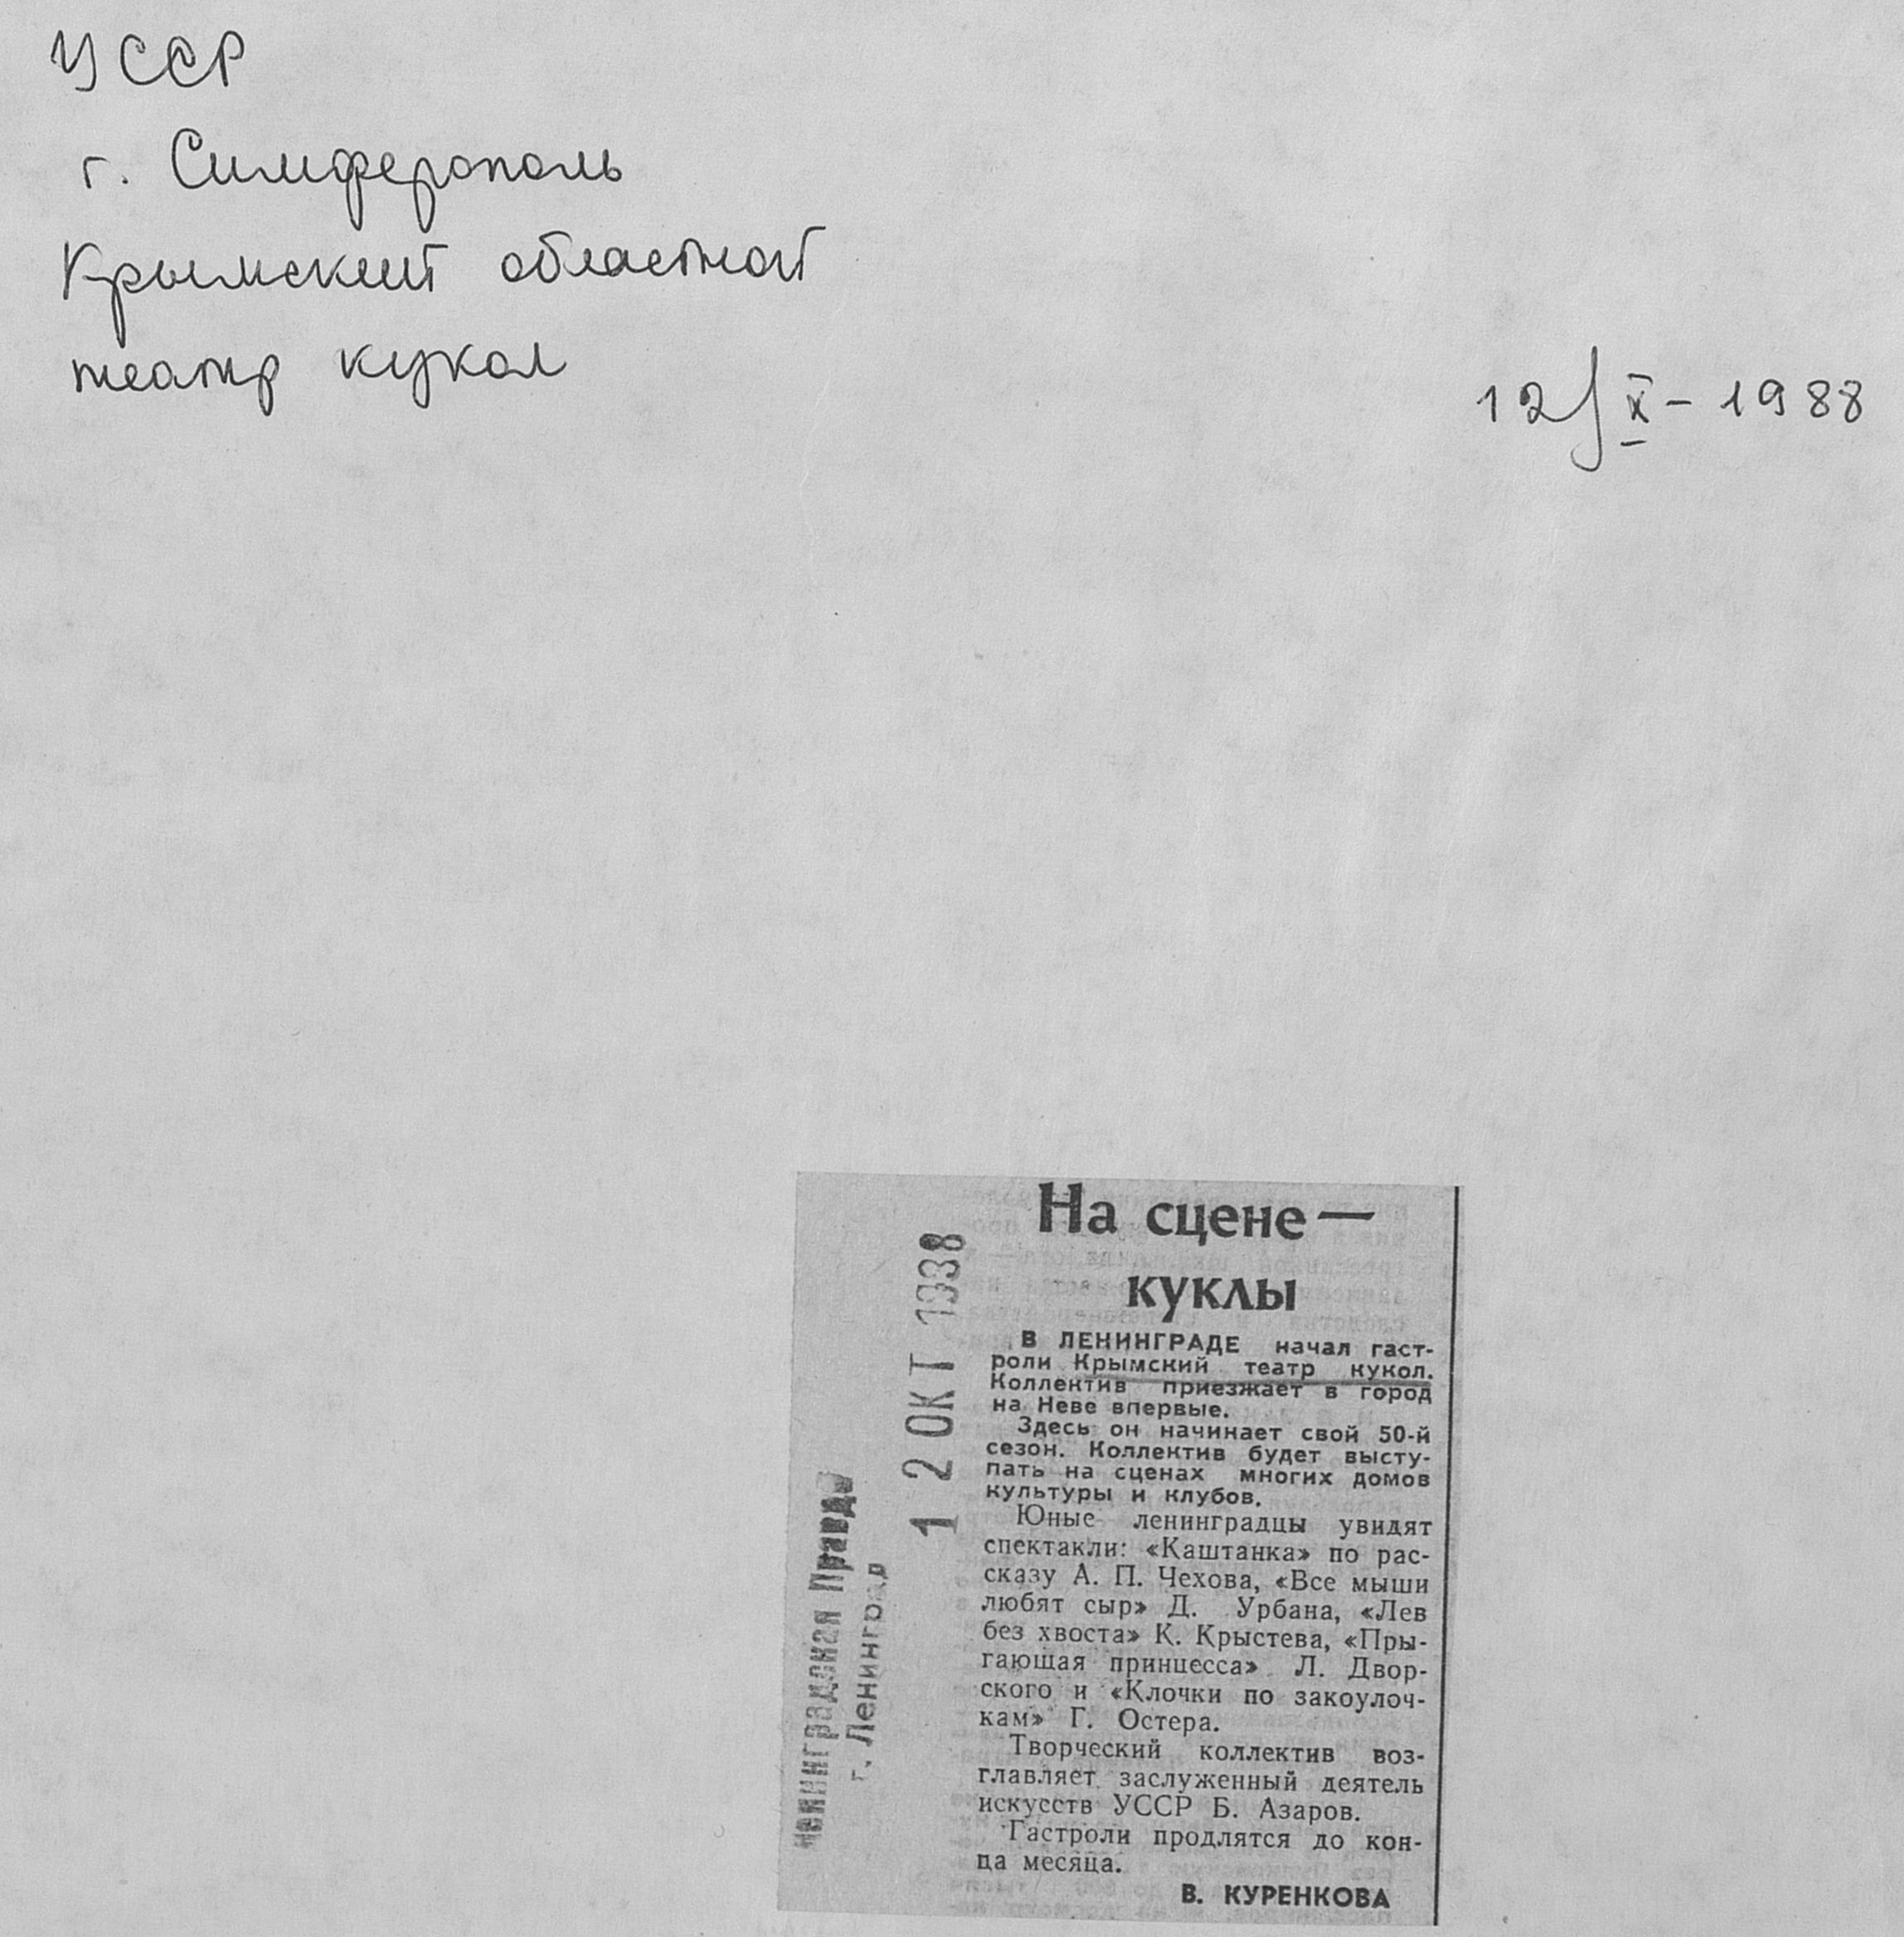 УССР
г. Симферополь
Крымский областной
театр кукол
12/X-1988
На сцене —
куклы
В ЛЕНИНГРАДЕ начал гаст-
роли Крымский театр кукол.
Коллектив приезжает в город
на Неве впервые.
Здесь он начинает свой 50-й
сезон. Коллектив будет высту-
пать на сценах многих домов
культуры и клубов.
Юные ленинградцы увидят
спектакли: «Каштанка» по рас-
сказу А. П. Чехова, «Все мыши
любят сыр» Д. Урбана, «Лев
без хвоста» К. Крыстева, «Пры-
гающая принцесса» Л. Двор-
ского и «Клочки по закоулоч-
кам» Г. Остера.
Творческий коллектив воз-
главляет заслуженный деятель
искусств УССР Б. Азаров.
Гастроли продлятся до кон-
ца месяца.
В. КУРЕНКОВА
Ленинградская Правда
г. Ленинград
12 ОКТ 1988